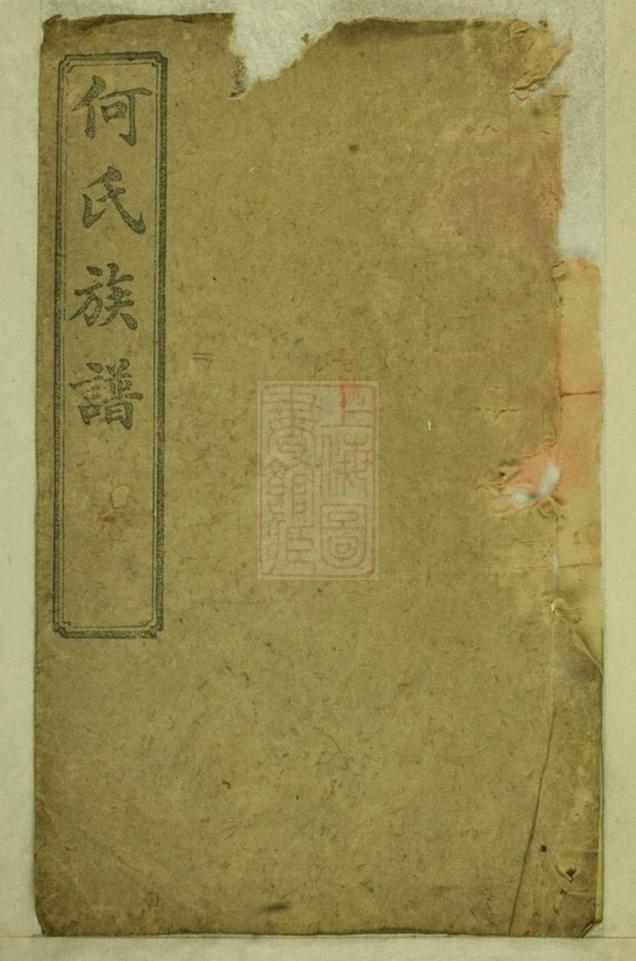 何氏族譜
上海圖
書館藏